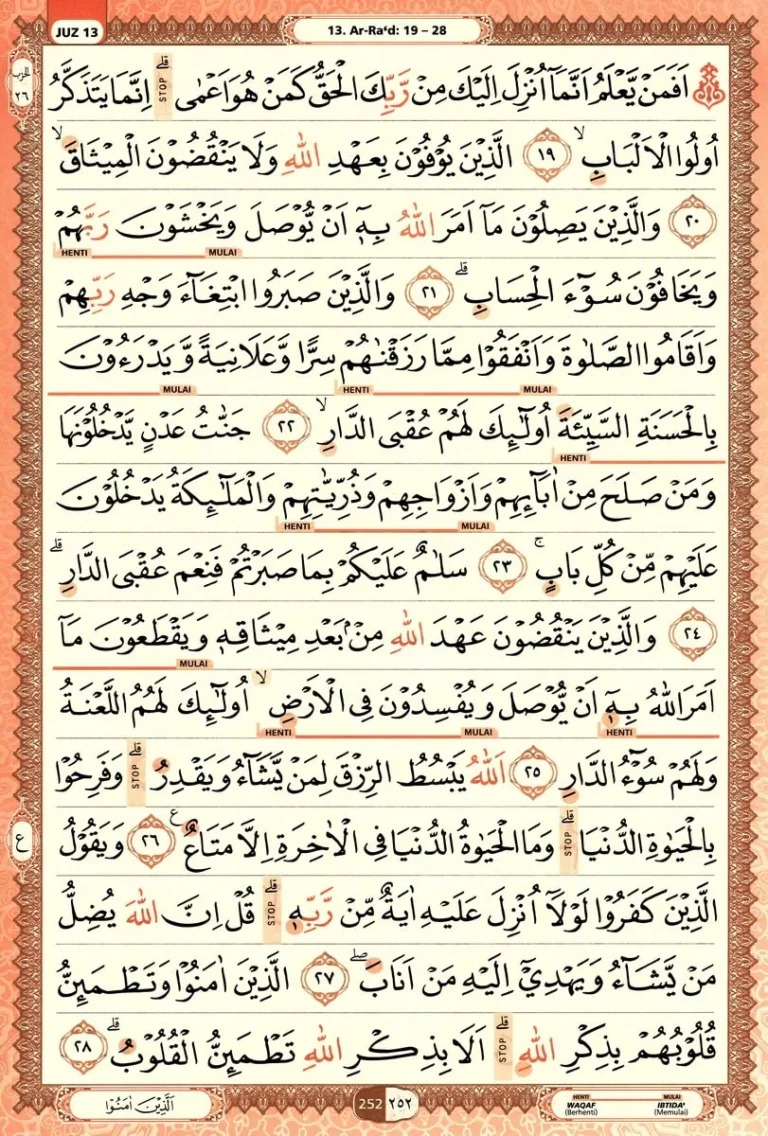 JUZ 13
13. Ar-Ra‘d: 19 – 28
الحزب
٢٦
اَفَمَنْ يَّعْلَمُ اَنَّمَآ اُنْزِلَ اِلَيْكَ مِنْ رَّبِّكَ الْحَقُّ كَمَنْ هُوَ اَعْمٰىۗ STOP اِنَّمَا يَتَذَكَّرُ
اُولُوا الْاَلْبَابِۙ ١٩ الَّذِيْنَ يُوْفُوْنَ بِعَهْدِ اللّٰهِ وَلَا يَنْقُضُوْنَ الْمِيْثَاقَۙ
٢٠ وَالَّذِيْنَ يَصِلُوْنَ مَآ اَمَرَ اللّٰهُ بِهٖٓ اَنْ يُّوْصَلَ وَيَخْشَوْنَ رَبَّهُمْ
MULAI HENTI
وَيَخَافُوْنَ سُوْۤءَ الْحِسَابِۗ ٢١ وَالَّذِيْنَ صَبَرُوا ابْتِغَاۤءَ وَجْهِ رَبِّهِمْ
وَاَقَامُوا الصَّلٰوةَ وَاَنْفَقُوْا مِمَّا رَزَقْنٰهُمْ سِرًّا وَّعَلَانِيَةً وَّيَدْرَءُوْنَ
MULAI HENTI MULAI
بِالْحَسَنَةِ السَّيِّئَةَ اُولٰۤىِٕكَ لَهُمْ عُقْبَى الدَّارِۙ ٢٢ جَنّٰتُ عَدْنٍ يَّدْخُلُوْنَهَا
HENTI
وَمَنْ صَلَحَ مِنْ اٰبَاۤىِٕهِمْ وَاَزْوَاجِهِمْ وَذُرِّيّٰتِهِمْ وَالْمَلٰۤىِٕكَةُ يَدْخُلُوْنَ
MULAI HENTI
عَلَيْهِمْ مِّنْ كُلِّ بَابٍۚ ٢٣ سَلٰمٌ عَلَيْكُمْ بِمَا صَبَرْتُمْ فَنِعْمَ عُقْبَى الدَّارِۗ
٢٤ وَالَّذِيْنَ يَنْقُضُوْنَ عَهْدَ اللّٰهِ مِنْۢ بَعْدِ مِيْثَاقِهٖ وَيَقْطَعُوْنَ مَآ
MULAI
اَمَرَ اللّٰهُ بِهٖٓ اَنْ يُّوْصَلَ وَيُفْسِدُوْنَ فِى الْاَرْضِۙ اُولٰۤىِٕكَ لَهُمُ اللَّعْنَةُ
HENTI MULAI HENTI
وَلَهُمْ سُوْۤءُ الدَّارِ ٢٥ اَللّٰهُ يَبْسُطُ الرِّزْقَ لِمَنْ يَّشَاۤءُ وَيَقْدِرُۗ STOP وَفَرِحُوْا
بِالْحَيٰوةِ الدُّنْيَاۗ STOP وَمَا الْحَيٰوةُ الدُّنْيَا فِى الْاٰخِرَةِ اِلَّا مَتَاعٌ ع ٢٦ وَيَقُوْلُ
ع
الَّذِيْنَ كَفَرُوْا لَوْلَآ اُنْزِلَ عَلَيْهِ اٰيَةٌ مِّنْ رَّبِّهٖۗ STOP قُلْ اِنَّ اللّٰهَ يُضِلُّ
مَنْ يَّشَاۤءُ وَيَهْدِيْٓ اِلَيْهِ مَنْ اَنَابَۖ ٢٧ الَّذِيْنَ اٰمَنُوْا وَتَطْمَىِٕنُّ
قُلُوْبُهُمْ بِذِكْرِ اللّٰهِۗ STOP اَلَا بِذِكْرِ اللّٰهِ تَطْمَىِٕنُّ الْقُلُوْبُۗ ٢٨
الَّذِيْنَ اٰمَنُوْا
252 ٢٥٢
HENTI MULAI
WAQAF IBTIDA'
(Berhenti) (Memulai)